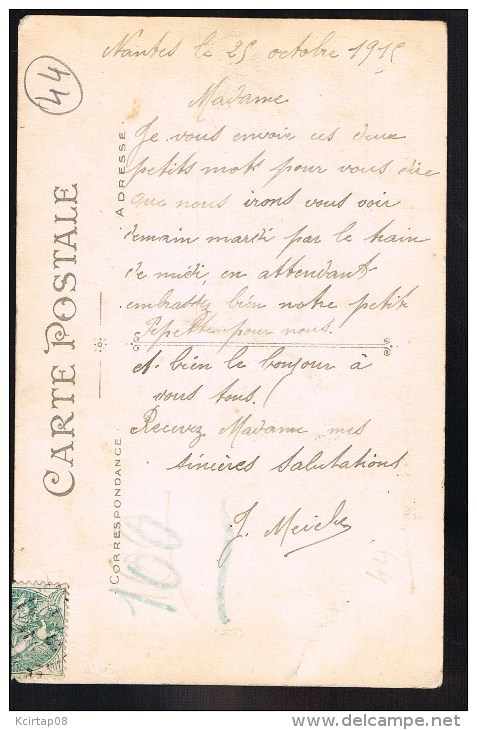 Nantes le 25 octobre 1915
44
Madame
Je vous envoir ces deux
petits mots pour vous dire
que nous irons vous voir
demain mardi par le train
de midi, en attendant
embrassez bien notre petite
pour nous.
et bien le bonjour à
vous tous!
Recevez Madame mes
sincères salutations
J.
CARTE POSTALE
ADRESSE
CORRESPONDANCE
100
44
Kcirtap08
http://www.delcampe.net